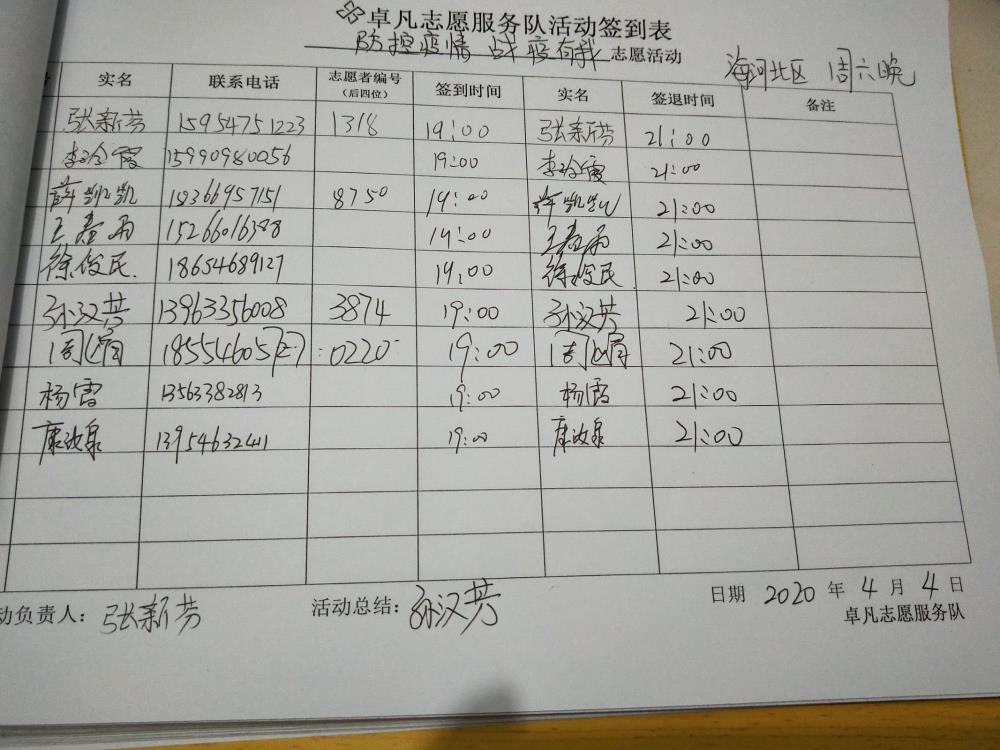 卓凡志愿服务队活动签到表
防控疫情 战疫有我 志愿活动
海河北区 周六晚
实名 联系电话 志愿者编号（后四位） 签到时间 实名 签退时间 备注
张新芳 15954751223 1318 19:00 张新芳 21:00
李玲霞 15990980056 19:00 李玲霞 21:00
薛凯凯 18366957151 8750 19:00 薛凯凯 21:00
15266016388 19:00 21:00
徐俊民 18654689127 19:00 徐俊民 21:00
孙汉芳 13963356008 3874 19:00 孙汉芳 21:00
185546057 0220 19:00 21:00
杨雪 13563382813 19:00 杨雪 21:00
康汝泉 13954632411 19:00 康汝泉 21:00
动负责人：张新芳 活动总结：孙汉芳 日期 2020 年 4 月 4 日
卓凡志愿服务队